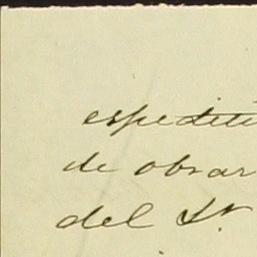 espediti
de obrar
del Sr